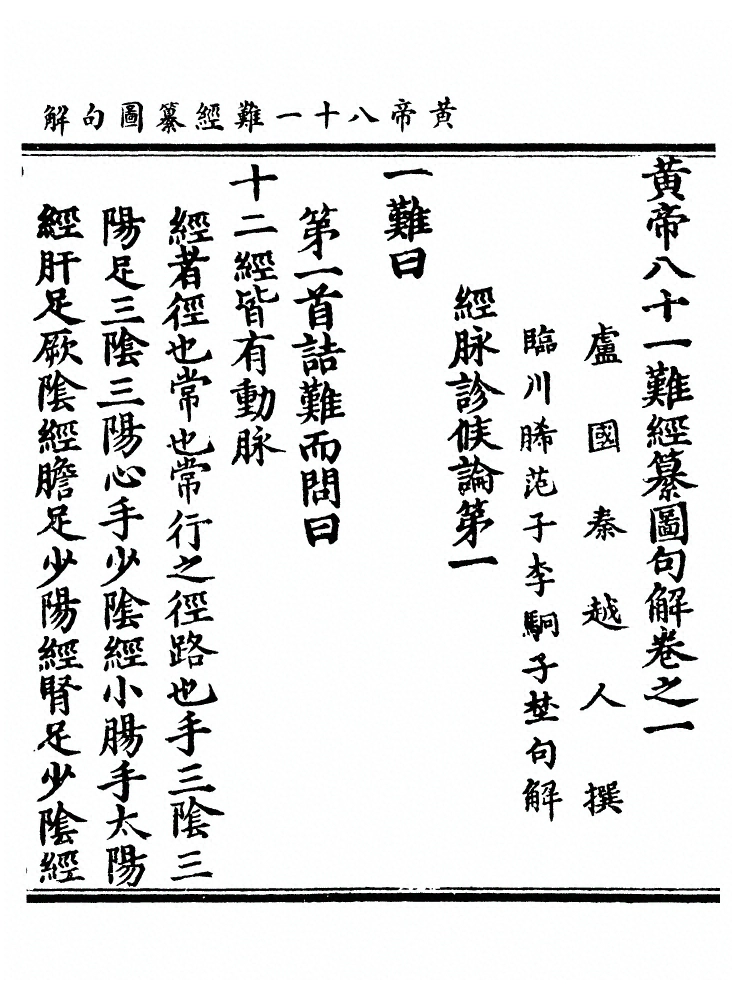 黃帝八十一難經纂圖句解
黃帝八十一難經纂圖句解卷之一
盧國秦越人撰
臨川晞范子李駉子埜句解
經脉診候論第一
一難曰
第一首詰難而問曰
十二經皆有動脉
經者徑也常也常行之徑路也手三陰三
陽足三陰三陽心手少陰經小腸手太陽
經肝足厥陰經膽足少陽經腎足少陰經